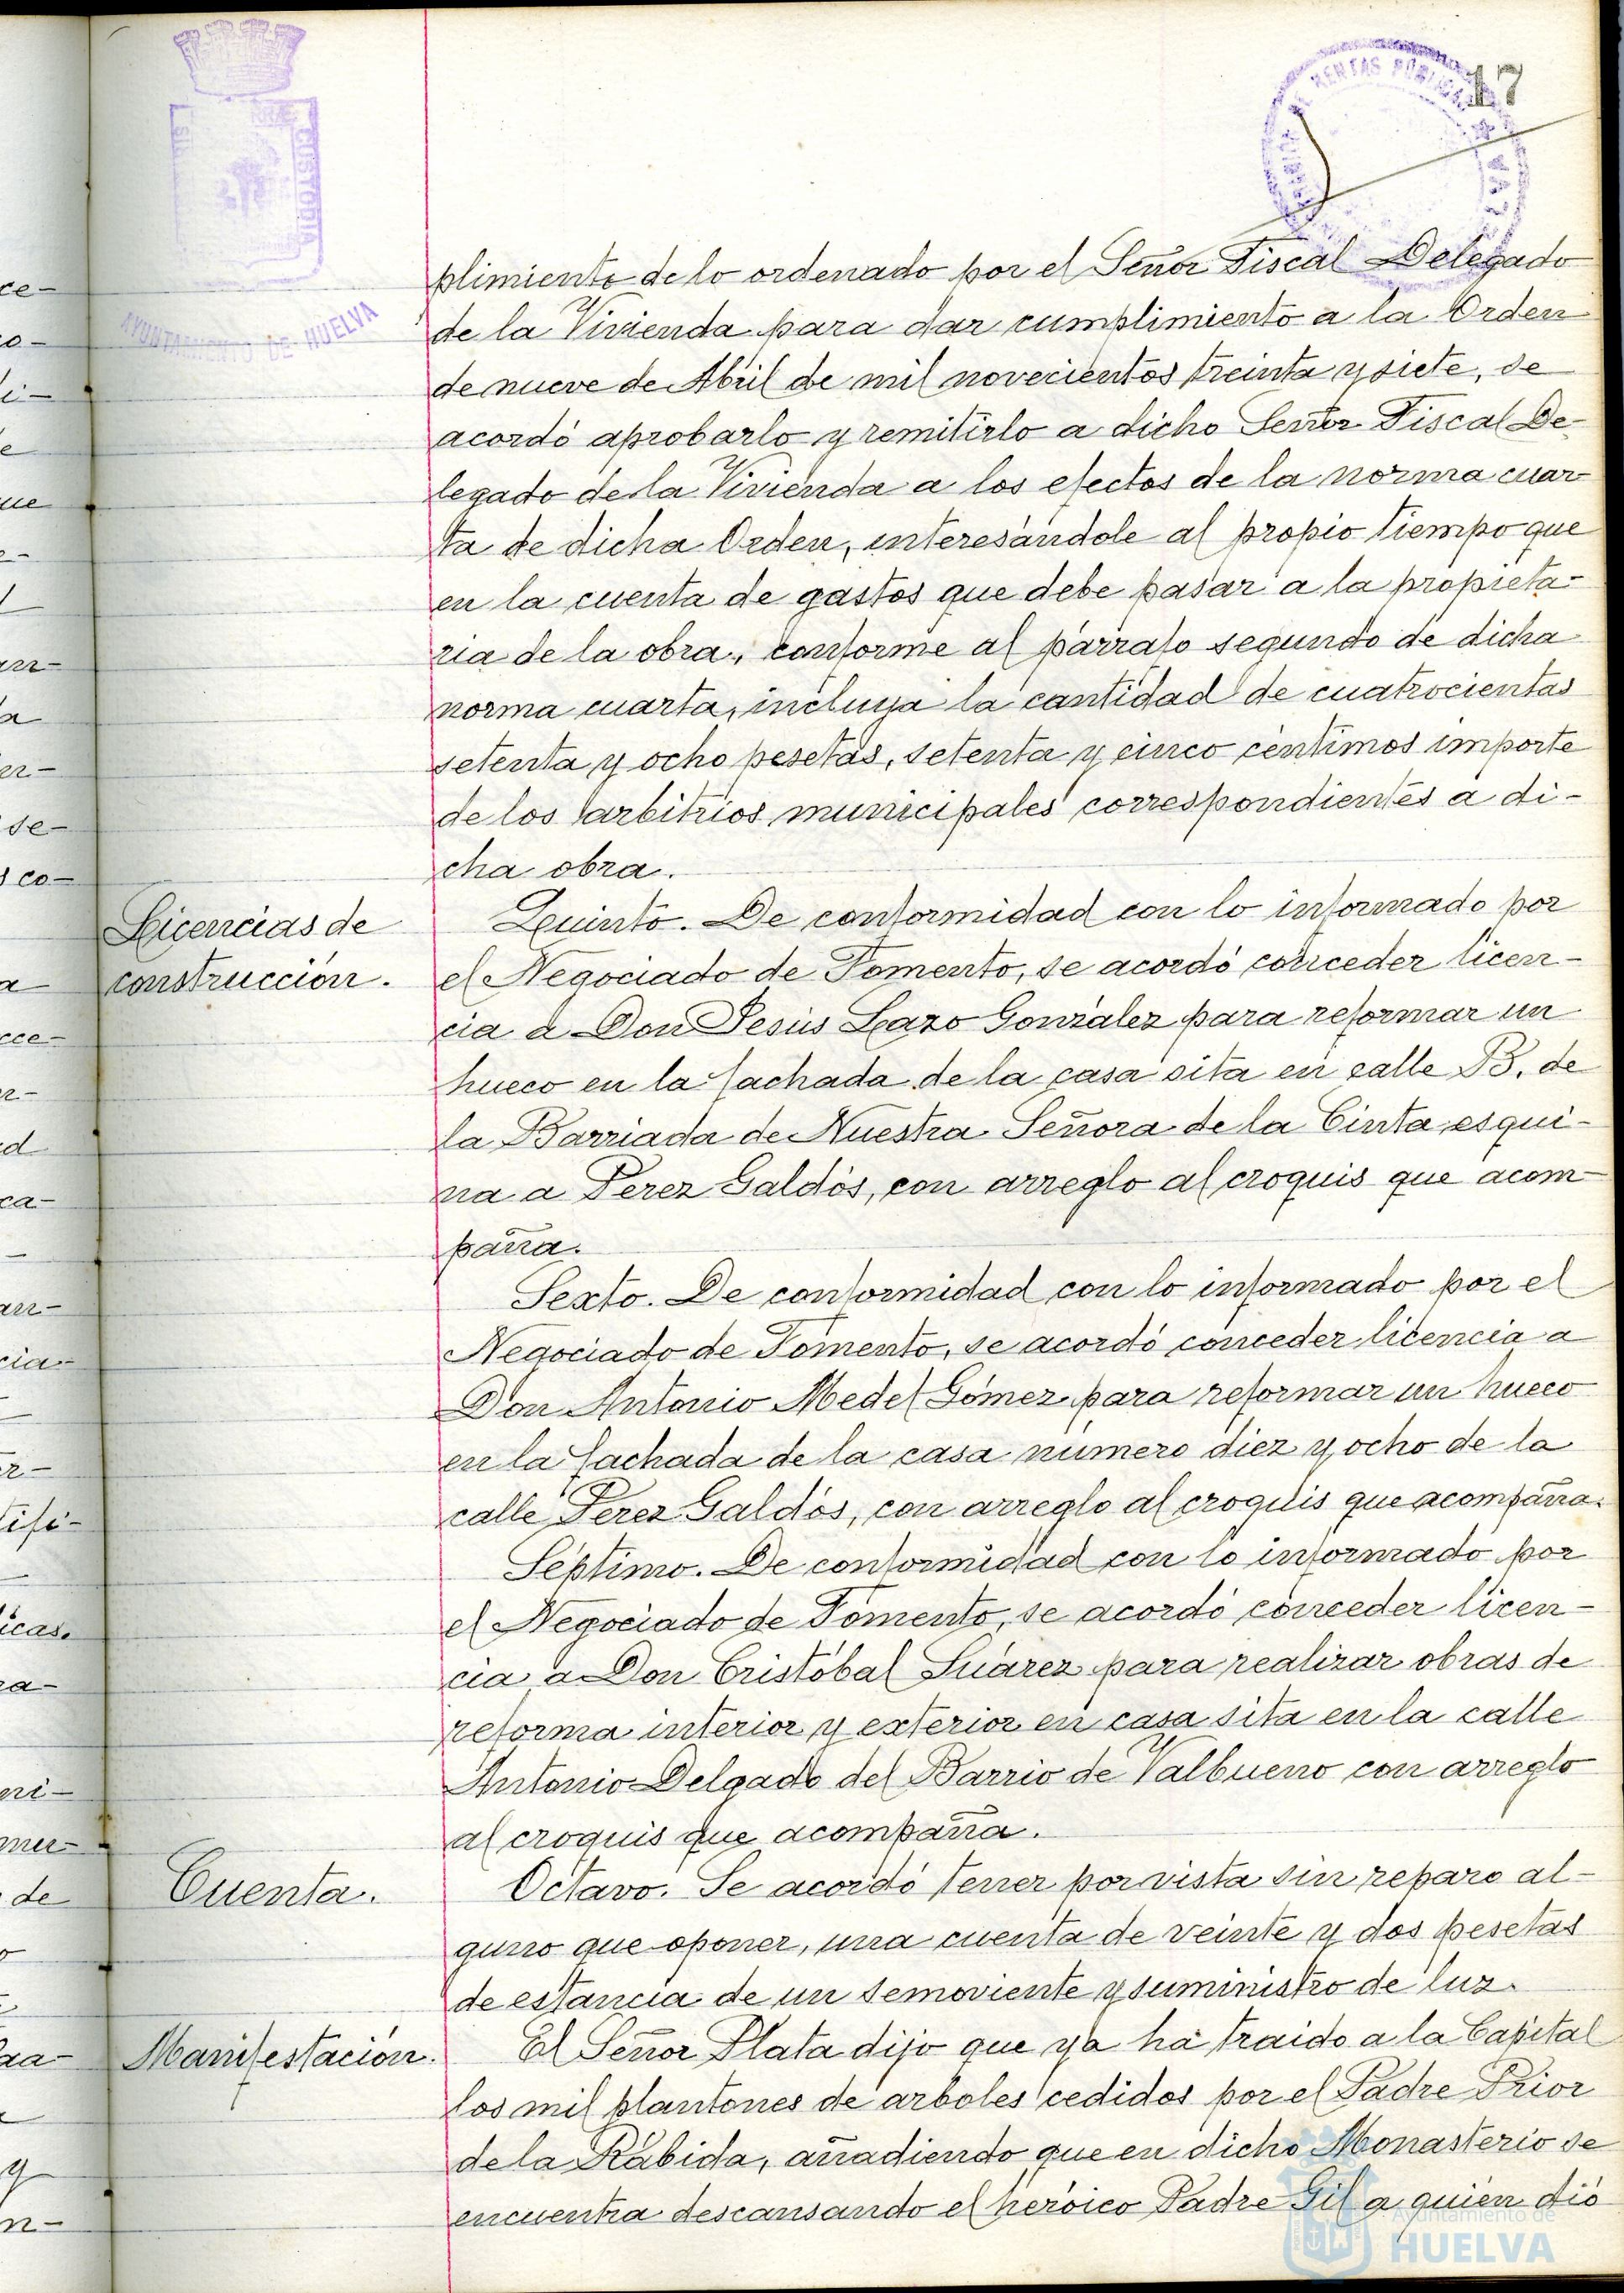 17
RENTAS PÚBLICAS
CUSTODIA
AYUNTAMIENTO DE HUELVA
plimiento de lo ordenado por el Señor Fiscal Delegado
de la Vivienda para dar cumplimiento a la Orden
de nueve de Abril de mil novecientos treinta y siete, se
acordó aprobarlo y remitirlo a dicho Señor Fiscal De-
legado de la Vivienda a los efectos de la norma cuar-
ta de dicha Orden, interesándole al propio tiempo que
en la cuenta de gastos que debe pasar a la propieta-
ria de la obra, conforme al párrafo segundo de dicha
norma cuarta, incluya la cantidad de cuatrocientas
setenta y ocho pesetas, setenta y cinco céntimos importe
de los arbitrios municipales correspondientes a di-
cha obra.
Licencias de
construcción.
Quinto. De conformidad con lo informado por
el Negociado de Fomento, se acordó conceder licen-
cia a Don Jesús Lazo González para reformar un
hueco en la fachada de la casa sita en calle B. de
la Barriada de Nuestra Señora de la Cinta esqui-
na a Perez Galdós, con arreglo al croquis que acom-
paña.
Sexto. De conformidad con lo informado por el
Negociado de Fomento, se acordó conceder licencia a
Don Antonio Medel Gómez para reformar un hueco
en la fachada de la casa número diez y ocho de la
calle Perez Galdós, con arreglo al croquis que acompaña.
Séptimo. De conformidad con lo informado por
el Negociado de Fomento, se acordó conceder licen-
cia a Don Cristóbal Suárez para realizar obras de
reforma interior y exterior en casa sita en la calle
Antonio Delgado del Barrio de Valbueno con arreglo
al croquis que acompaña.
Cuenta.
Octavo. Se acordó tener por vista sin reparo al-
guno que oponer, una cuenta de veinte y dos pesetas
de estancia de un semoviente y suministro de luz.
Manifestación.
El Señor Plata dijo que ya ha traido a la Capital
los mil plantones de árboles cedidos por el Padre Prior
de la Rábida, añadiendo que en dicho Monasterio se
encuentra descansando el heróico Padre Gil a quien dió
Ayuntamiento de
HUELVA